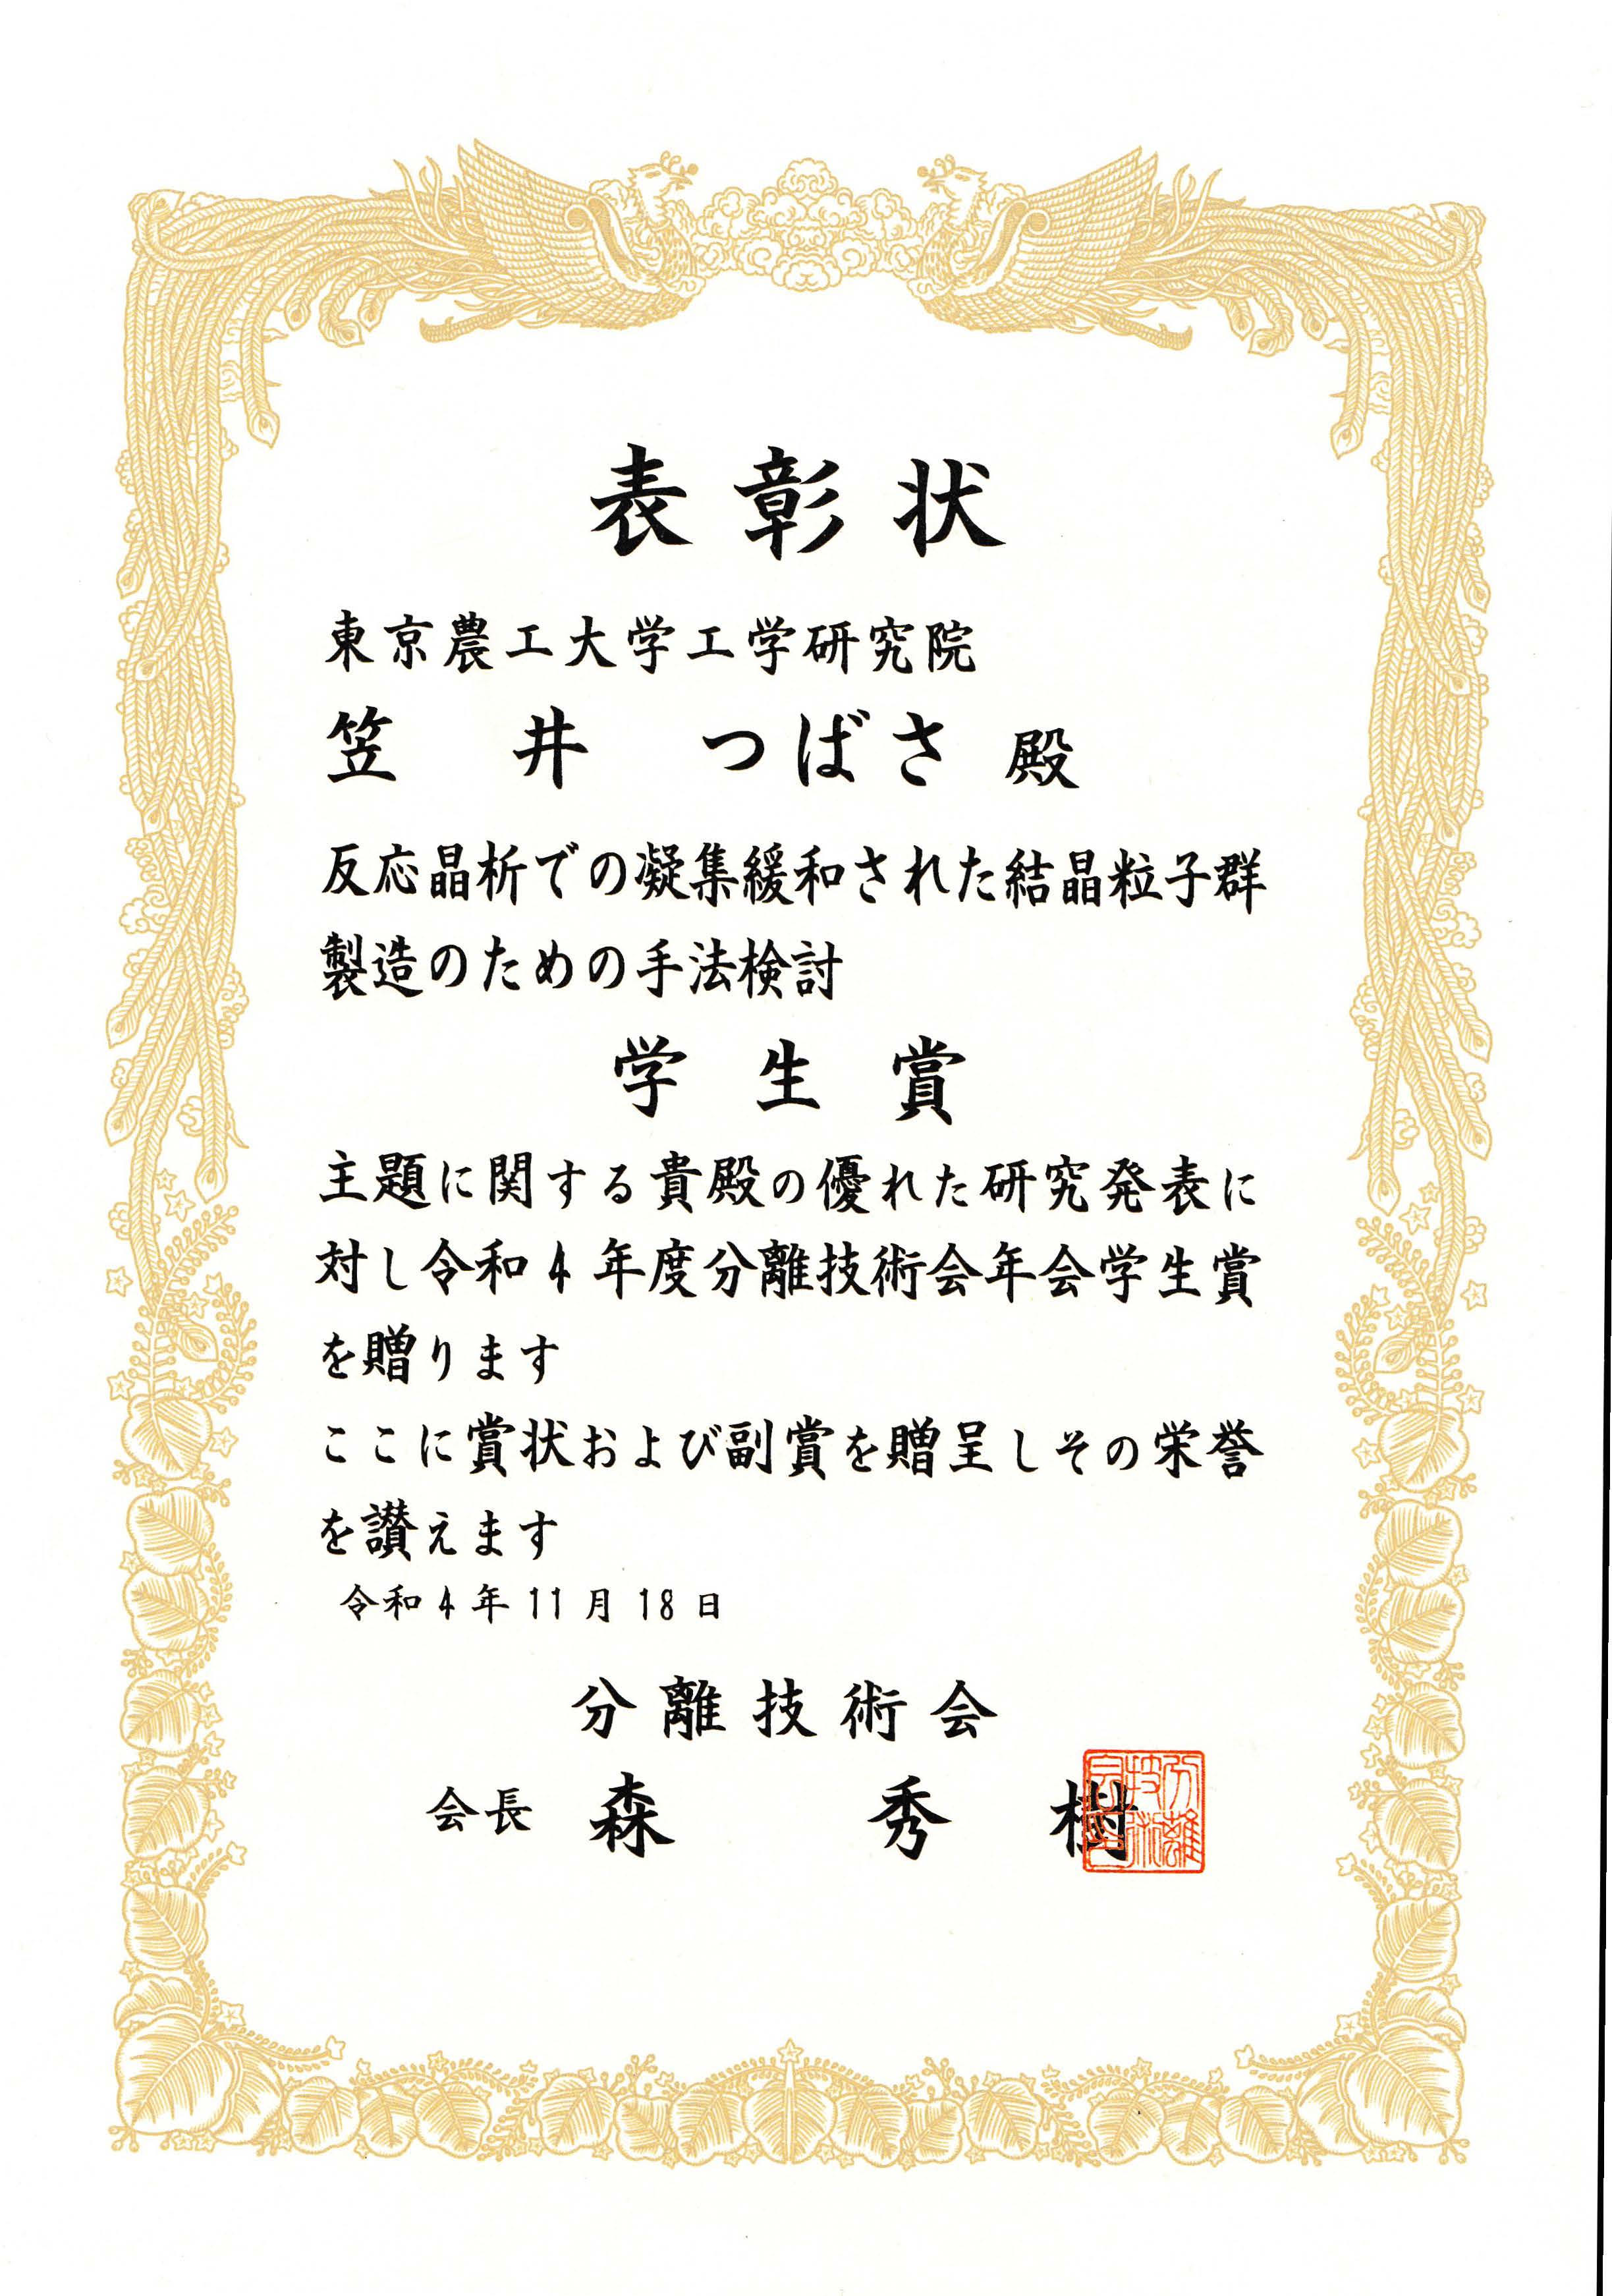 表彰状
東京農工大学工学研究院
笠井 つばさ 殿
反応晶析での凝集緩和された結晶粒子群
製造のための手法検討
学生賞
主題に関する貴殿の優れた研究発表に
対し令和4年度分離技術会年会学生賞
を贈ります
ここに賞状および副賞を贈呈しその栄誉
を讃えます
令和4年11月18日
分離技術会
会長 森 秀樹
分離技術会